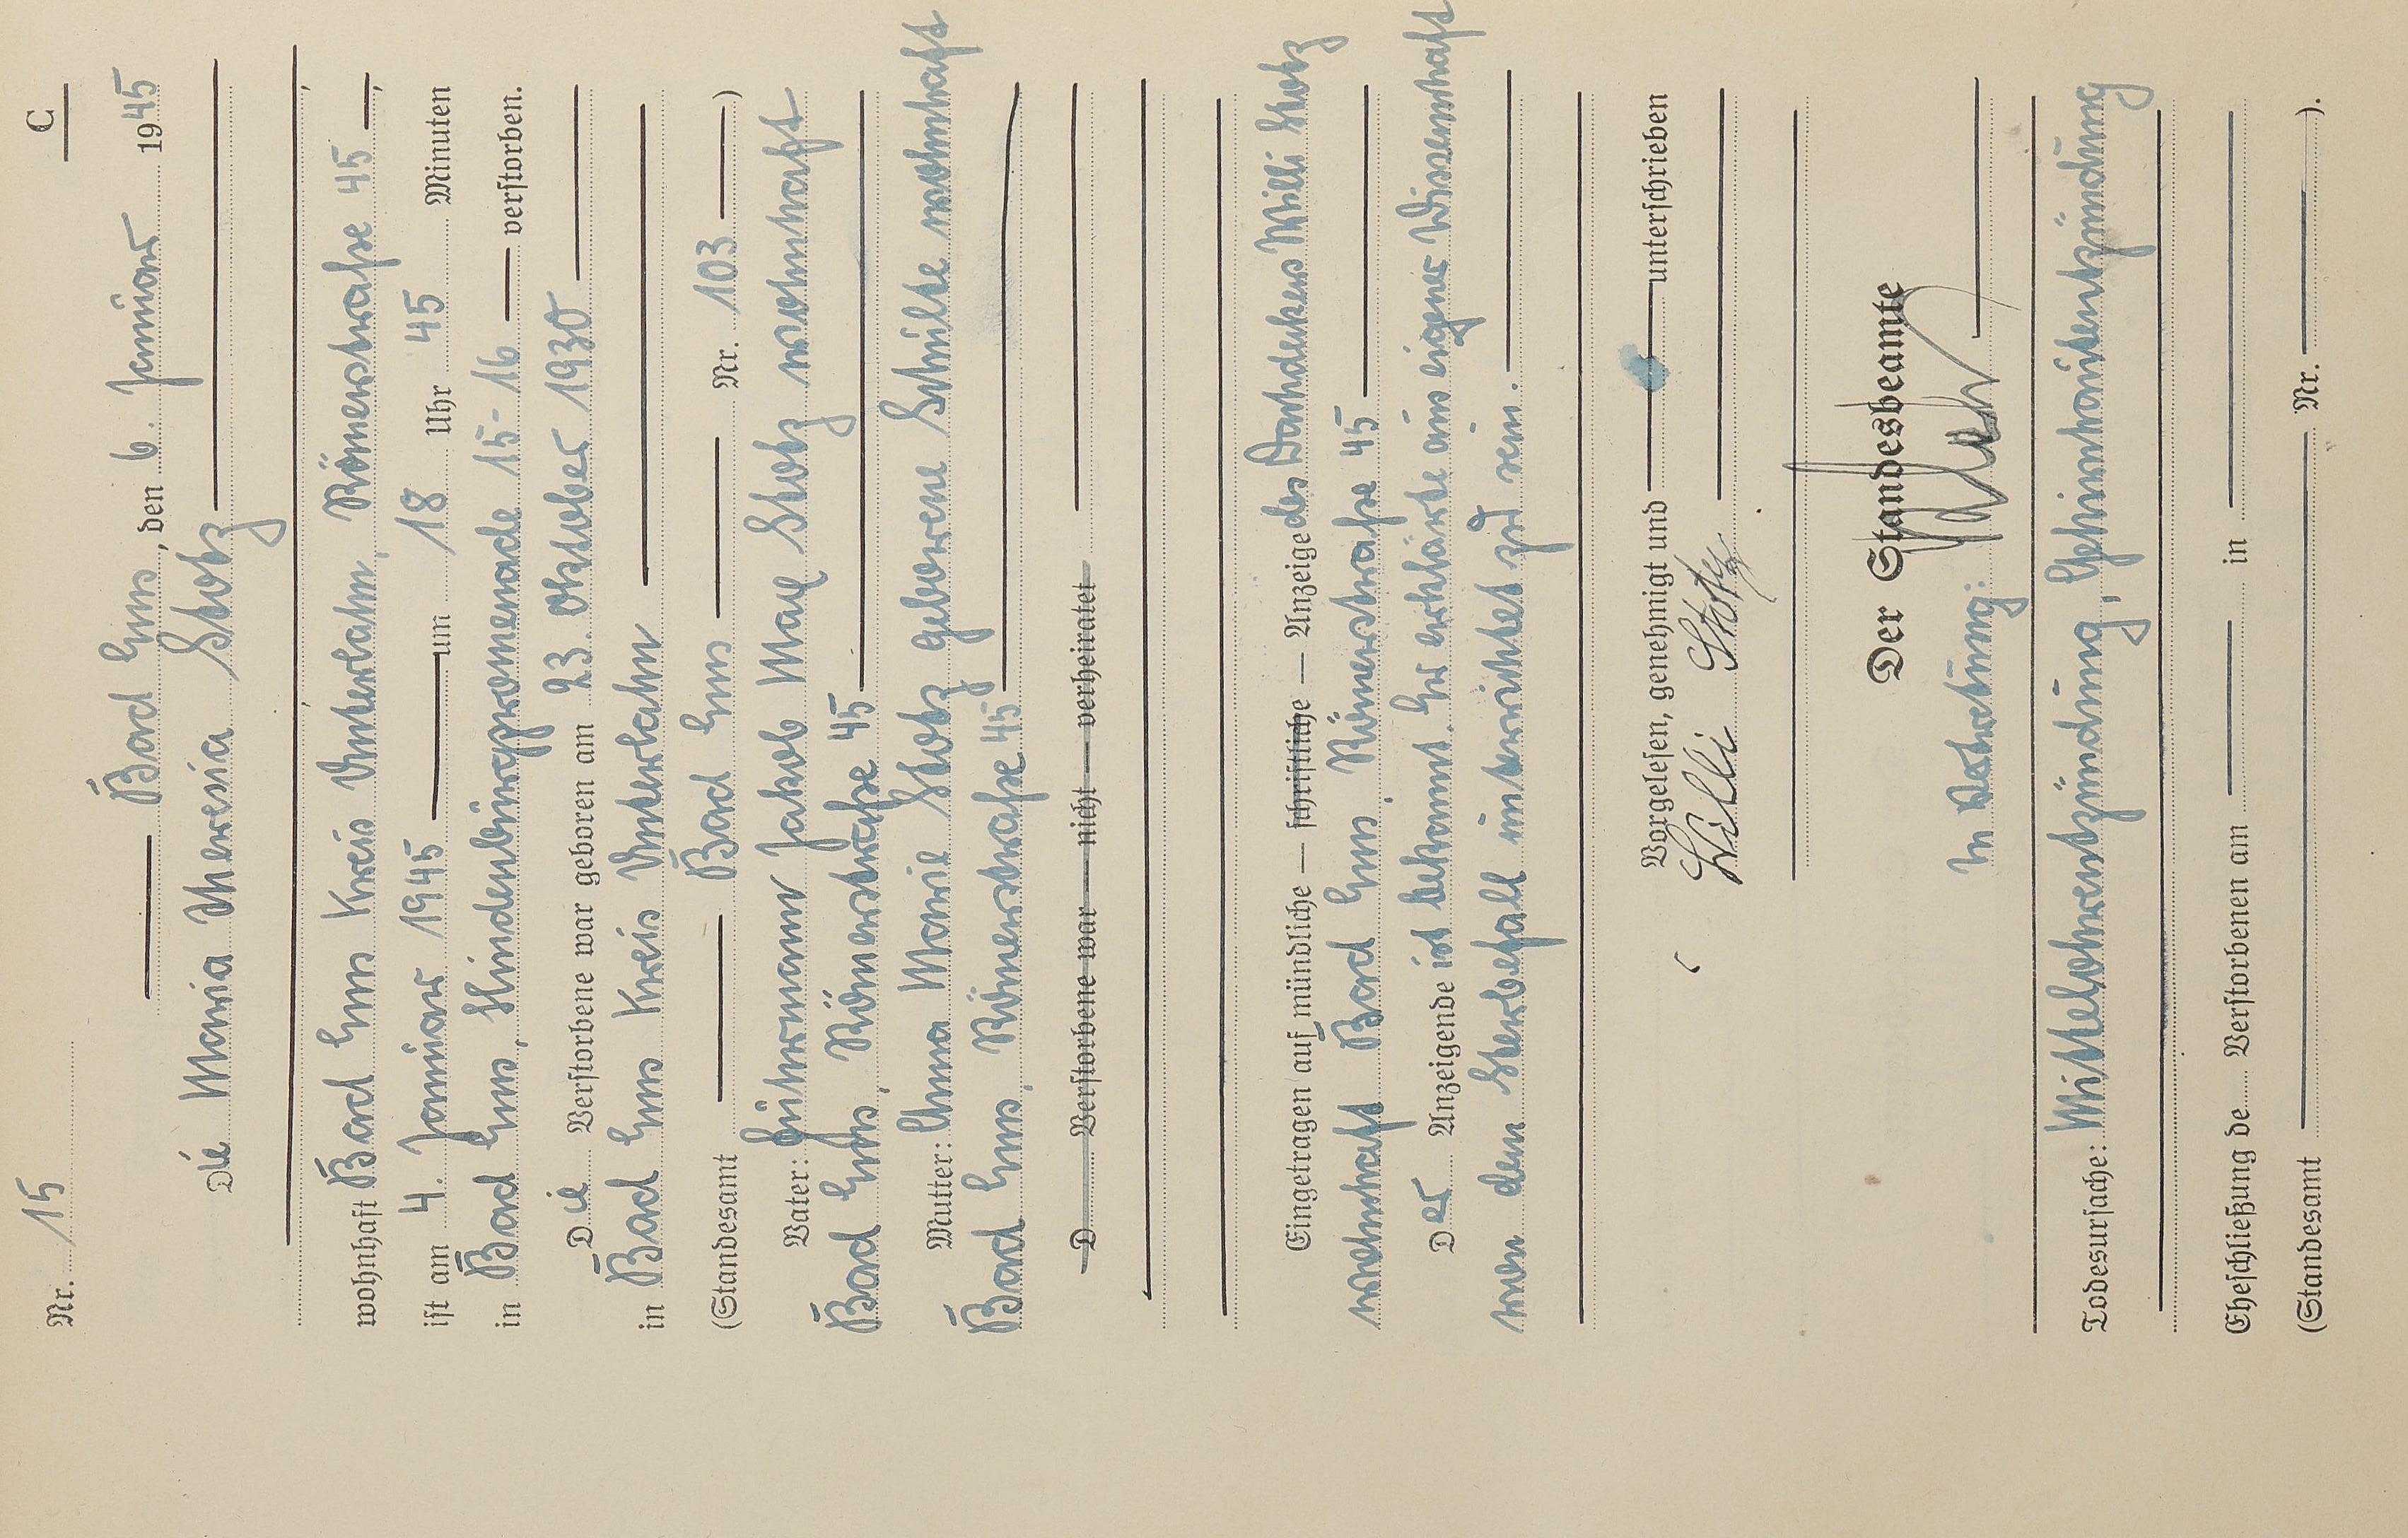 Nr. 15 C
Bad Ems, den 6. Januar 1945
Die Maria Theresia Stotz
wohnhaft Bad Ems Kreis Unterlahn, Römerstraße 45,
ist am 4. Januar 1945 um 18 Uhr 45 Minuten
in Bad Ems, Hindenburgpromenade 15-16 verstorben.
Die Verstorbene war geboren am 23. Oktober 1930
in Bad Ems Kreis Unterlahn
(Standesamt Bad Ems Nr. 103)
Vater: Fuhrmann Jakob Max Stotz wohnhaft
Bad Ems, Römerstraße 45
Mutter: Anna Marie Stotz geborene Schulte wohnhaft
Bad Ems, Römerstraße 45
D Verstorbene war — nicht — verheiratet
Eingetragen auf mündliche — schriftliche — Anzeige des Dachdeckers Willi Stotz
wohnhaft Bad Ems, Römerstraße 45
Der Anzeigende ist bekannt. Er erklärte aus eigener Wissenschaft
von dem Sterbefall unterrichtet zu sein.
Vorgelesen, genehmigt und unterschrieben
Willi Stotz
Der Standesbeamte
In Vertretung:
Todesursache: Mittelohrentzündung, Gehirnhautentzündung
Eheschließung de Verstorbenen am in
(Standesamt Nr. ).